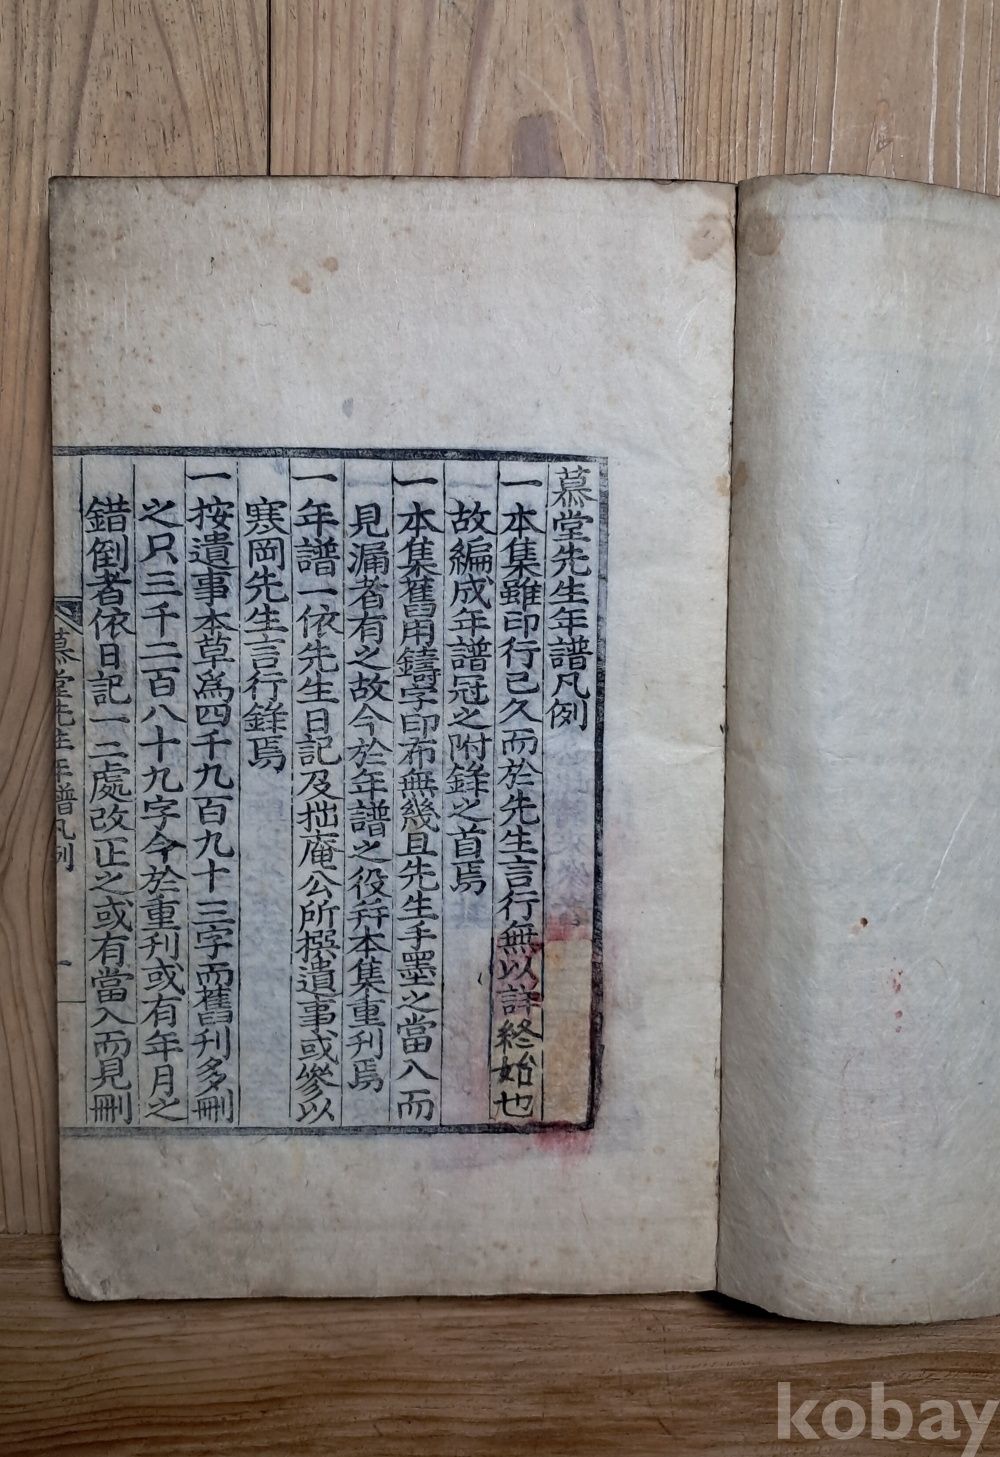 慕堂先生年譜凡例
一本集雖印行已久而於先生言行無以詳終始也
故編成年譜冠之附錄之首焉
一本集舊用鑄字印布無幾且先生手墨之當入而
見漏者有之故今於年譜之役幷本集重刊焉
一年譜一依先生日記及拙庵公所撰遺事或參以
寒岡先生言行錄焉
一按遺事本草爲四千九百九十三字而舊刊多刪
之只三千二百八十九字今於重刊或有年月之
錯倒者依日記一二處改正之或有當入而見刪
慕堂先生年譜凡例
一
kobay